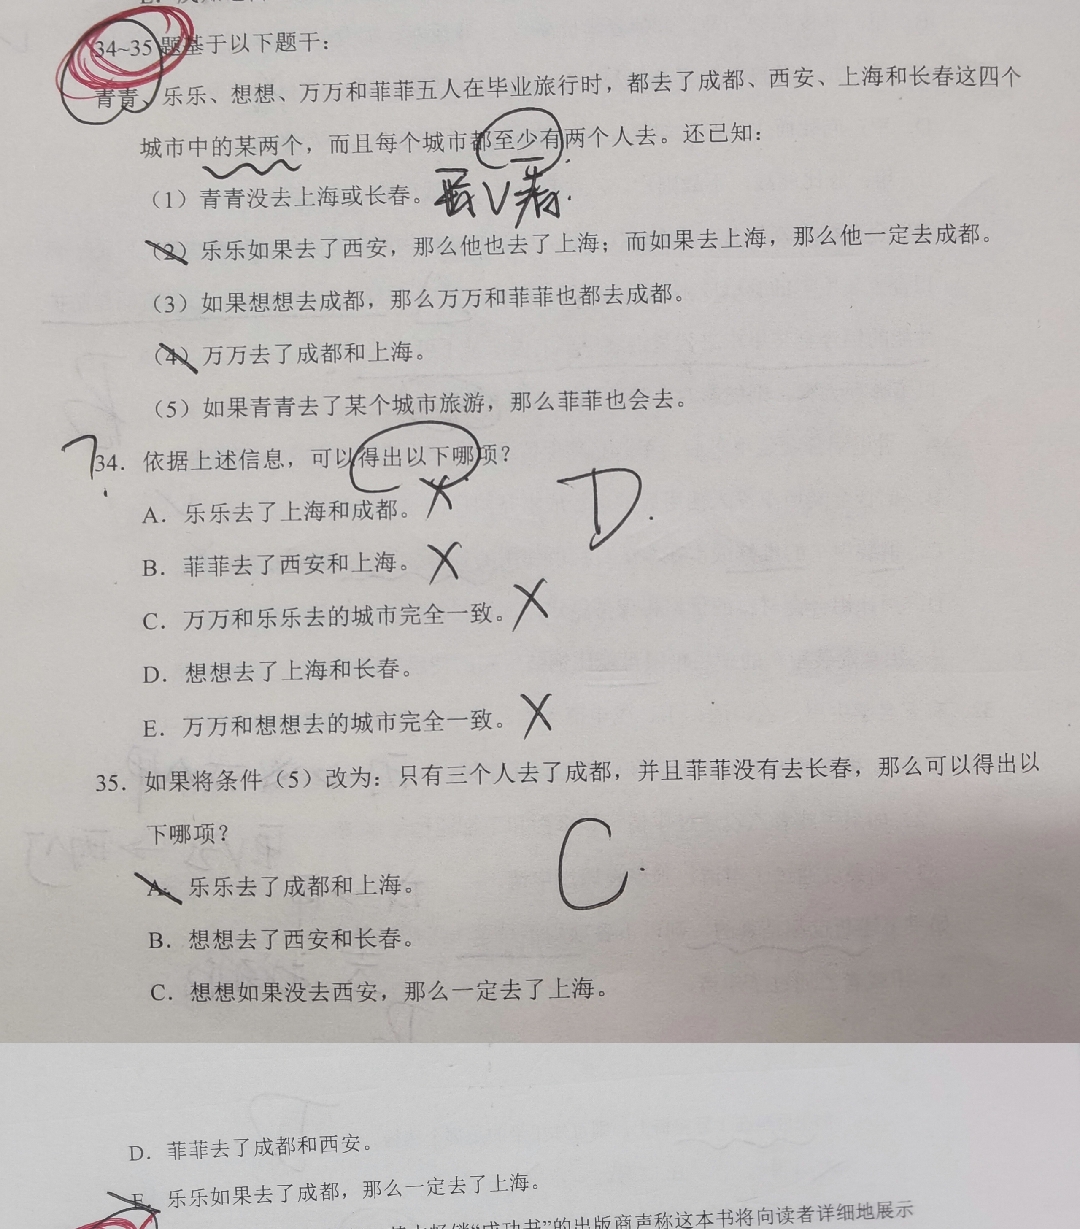 34~35 题基于以下题干：
青青、乐乐、想想、万万和菲菲五人在毕业旅行时，都去了成都、西安、上海和长春这四个
城市中的某两个，而且每个城市都至少有两个人去。还已知：
（1）青青没去上海或长春。
（2）乐乐如果去了西安，那么他也去了上海；而如果去上海，那么他一定去成都。
（3）如果想想去成都，那么万万和菲菲也都去成都。
（4）万万去了成都和上海。
（5）如果青青去了某个城市旅游，那么菲菲也会去。
?34．依据上述信息，可以得出以下哪项？
A．乐乐去了上海和成都。 X
D.
B．菲菲去了西安和上海。 X
C．万万和乐乐去的城市完全一致。 X
D．想想去了上海和长春。
E．万万和想想去的城市完全一致。 X
35．如果将条件（5）改为：只有三个人去了成都，并且菲菲没有去长春，那么可以得出以
下哪项？
C.
A．乐乐去了成都和上海。
B．想想去了西安和长春。
C．想想如果没去西安，那么一定去了上海。
D．菲菲去了成都和西安。
E．乐乐如果去了成都，那么一定去了上海。
“成功书”的出版商声称这本书将向读者详细地展示